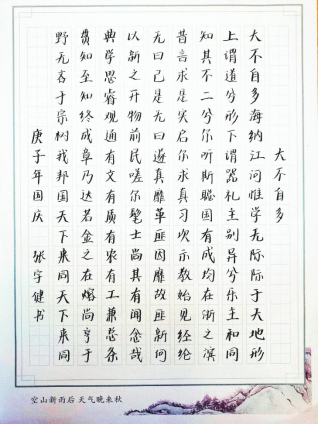 大不自多
大不自多海纳江河惟学无际际于天地形
上谓道兮形下谓器礼主别异兮乐主和同
知其不二兮尔听斯聪国有成均在浙之滨
昔言求是实启尔求真习坎示教始见经纶
无曰已是无曰遂真靡革匪因靡故匪新何
以新之开物前民嗟尔髦士尚其有闻念哉
典学思睿观通有文有质有农有工兼总条
贯知至知终成章乃达若金之在熔尚亨于
野无吝于宗树我邦国天下来同天下来同
庚子年国庆 张宇健书
空山新雨后 天气晚来秋